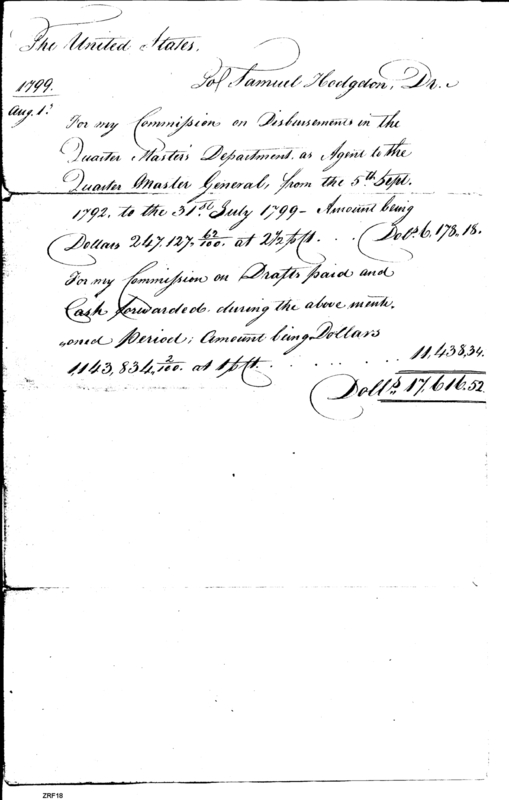 The United States,
To Samuel Hodgdon, Dr.
1799.
Aug. 1st
For my Commission on Disbursements in the
Quarter Master's Department, as Agent to the
Quarter Master General, from the 5th Sept.
1792, to the 31st July 1799 - Amount being
Dollars 247,127. 62/100. at 2 1/2 p Ct. . . . Dols. 6,178.18.
For my Commission on Drafts paid and
Cash forwarded during the above menti-
-oned Period; Amount being Dollars
1,143,834. 2/100. at 1 p Ct. . . . . . . . 11,438.34.
Dolls. 17,616.52
ZRF18